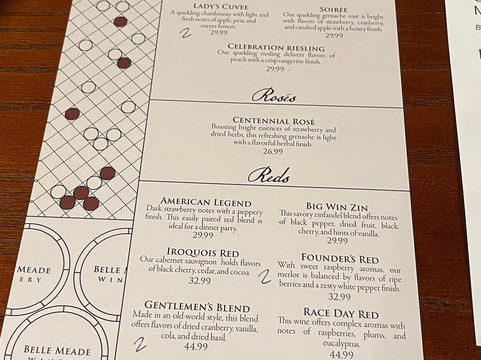 LADY'S CUVEE
A sparkling chardonnay with light and
fresh notes of apple, pear, and
meyer lemon.
29.99
2
SOIRÉE
Our sparkling grenache rosé is bright
with flavors of strawberry, cranberry,
and candied apple with a honey finish.
29.99
CELEBRATION RIESLING
Our sparkling riesling delivers flavors of
peach with a crisp tangerine finish.
29.99
Rosés
CENTENNIAL ROSÉ
Boasting bright essences of strawberry and
dried herbs, this refreshing grenache is light
with a flavorful herbal finish.
26.99
Reds
AMERICAN LEGEND
Dark strawberry notes with a peppery
finish. This easily paired red blend is
ideal for a dinner party.
29.99
BIG WIN ZIN
This savory zinfandel blend offers notes
of black pepper, dried fruit, black
cherry, and hints of vanilla.
29.99
IROQUOIS RED
Our cabernet sauvignon holds flavors
of black cherry, cedar, and cocoa.
32.99
2
FOUNDER'S RED
With sweet raspberry aromas, our
merlot is balanced by flavors of ripe
berries and a zesty white pepper finish.
32.99
GENTLEMEN'S BLEND
Made in an old-world style, this blend
offers flavors of dried cranberry, vanilla,
cola, and dried basil.
2
44.99
RACE DAY RED
This wine offers complex aromas with
notes of raspberries, plums, and
eucalyptus.
44.99
MEADE
ERY
BELLE M
WIN
BELLE MEADE
WINERY